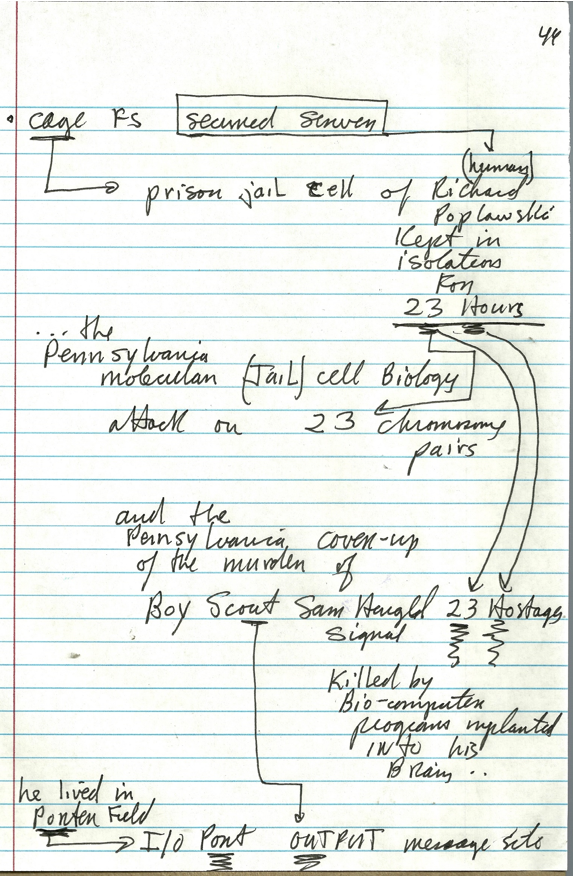 44
• cage FS secured server
(human)
prison jail cell of Richard
Poplawski
Kept in
isolation
For
23 Hours
... the
Pennsylvania
molecular (Jail) cell Biology
attack on 23 chromosome
pairs
and the
Pennsylvania cover-up
of the murder of
Boy Scout Sam Herald 23 Hostages
Signal
Killed by
Bio-computer
programs implanted
INTO his
Brain ..
he lived in
Porter Field
I/O Port OUTPUT message